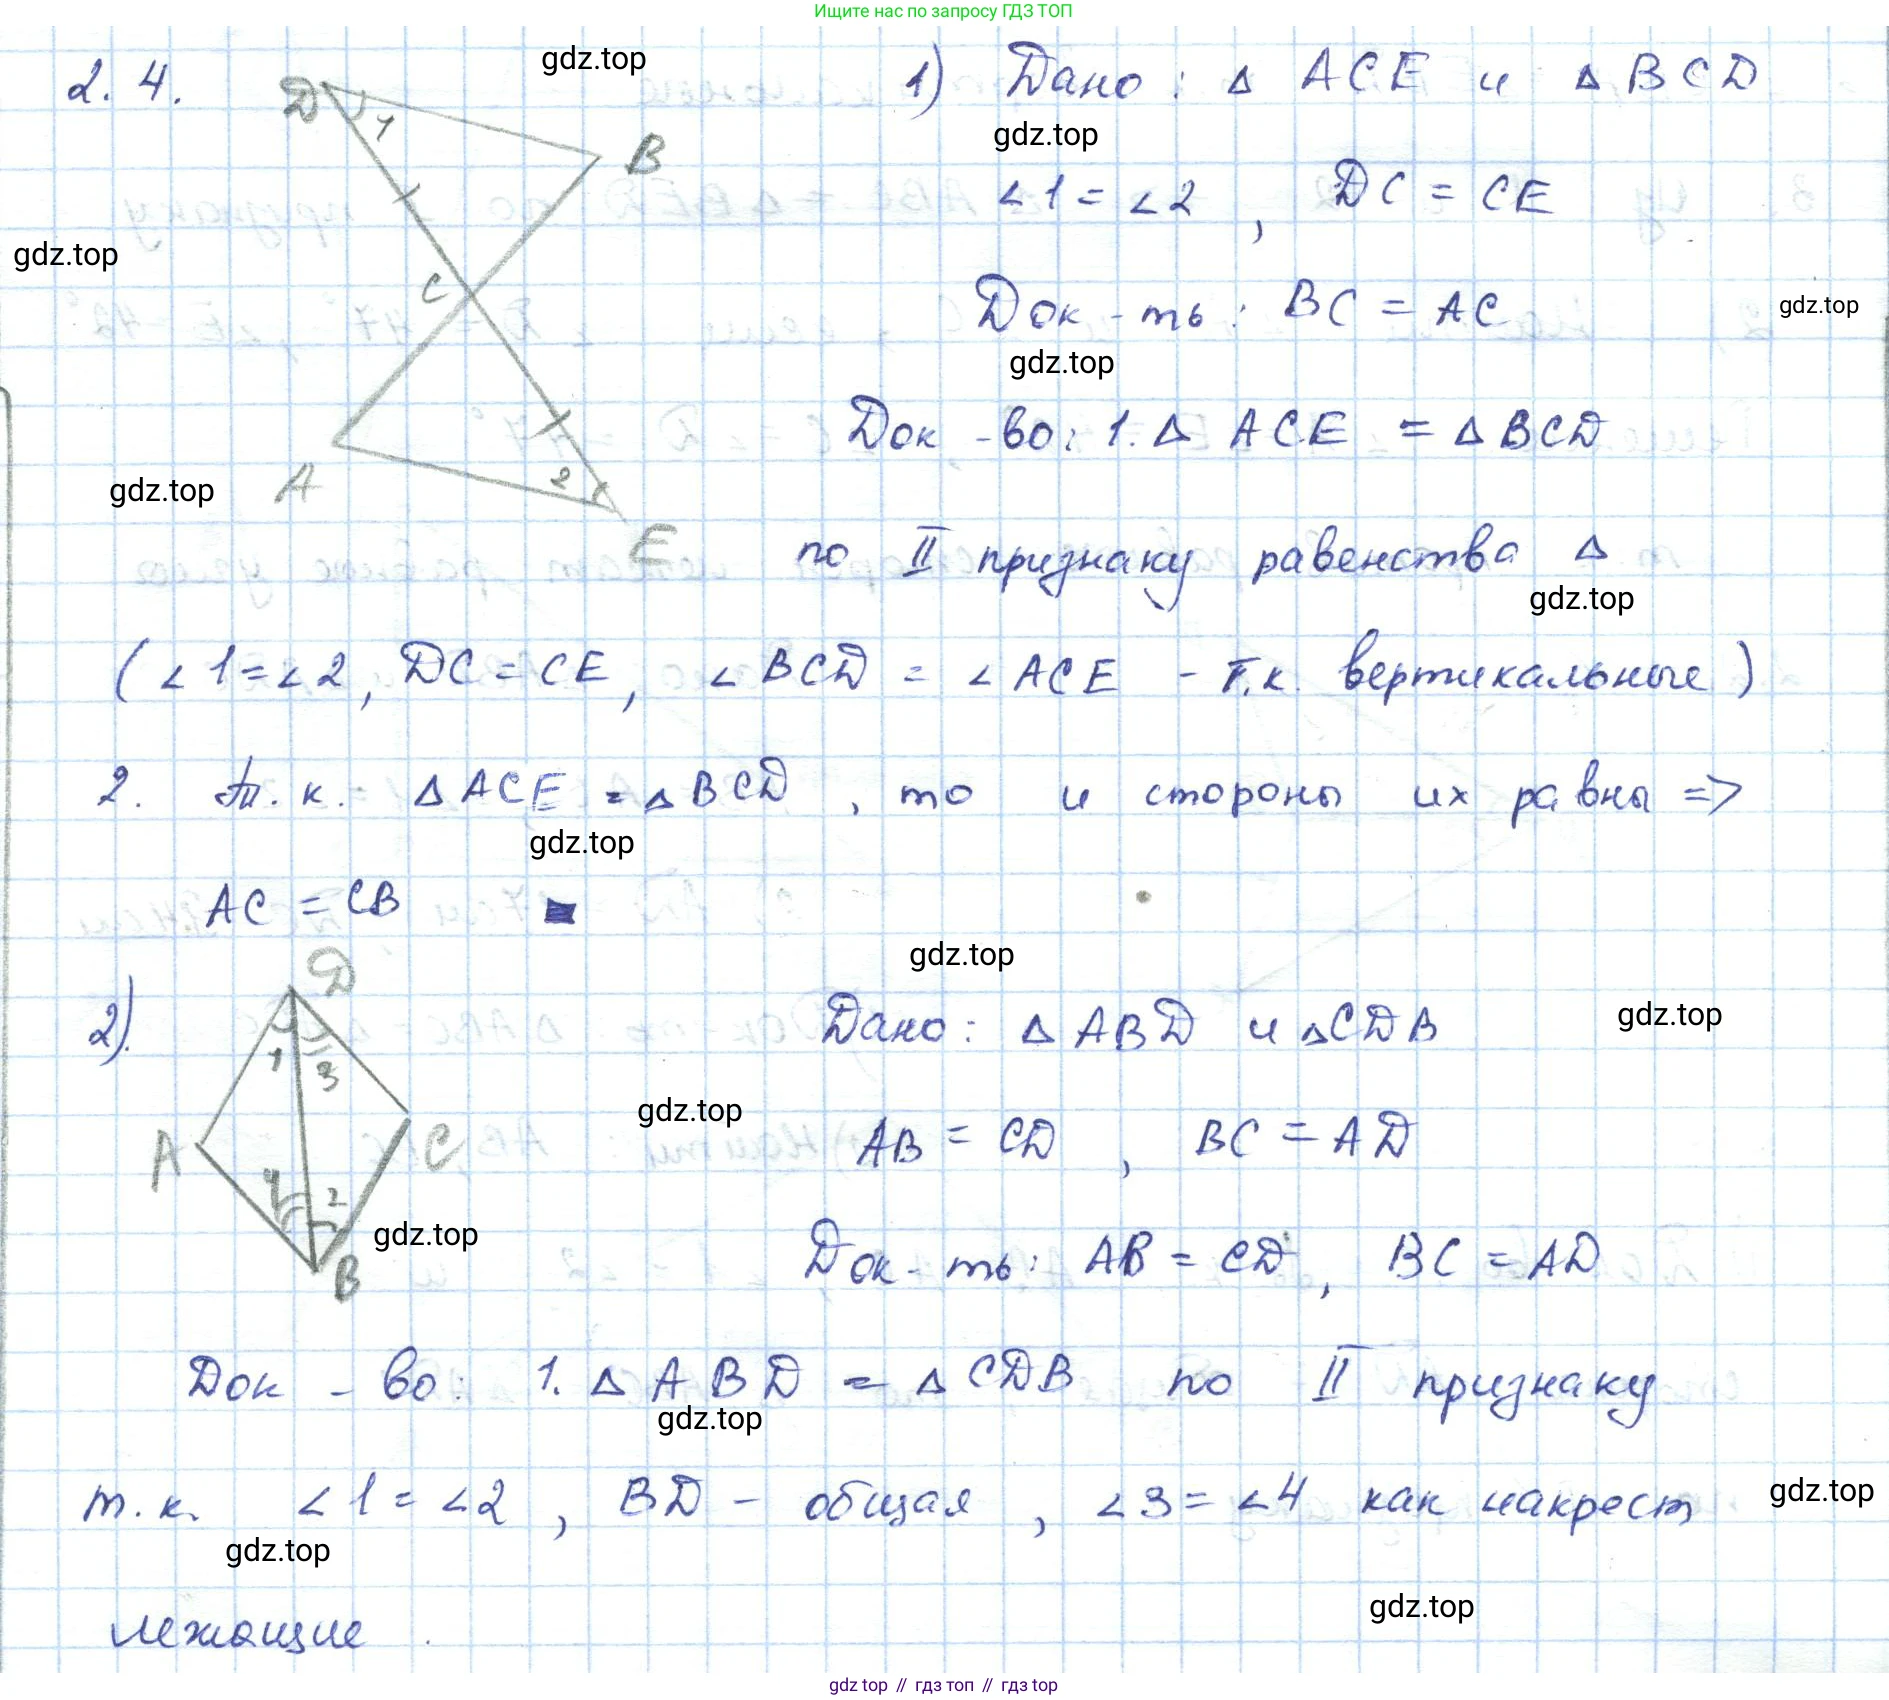 Ищите нас по запросу ГДЗ ТОП
2. 4.
gdz.top
1) Дано: Δ ACE и Δ BCD
D
1
B
gdz.top
∠1 = ∠2 , DC = CE
gdz.top
C
Док-ть: BC = AC
gdz.top
gdz.top
Док-во: 1. Δ ACE = Δ BCD
A
2
gdz.top
E
по II признаку равенства Δ
gdz.top
(∠1=∠2, DC = CE, ∠BCD = ∠ACE - т.к. вертикальные)
2. Т.к. Δ ACE = Δ BCD , то и стороны их равны =>
gdz.top
AC = CB
gdz.top
2).
D
Дано: Δ ABD и Δ CDB
gdz.top
1
3
gdz.top
A
C
AB = CD , BC = AD
4
2
gdz.top
B
Док-ть: AB = CD, BC = AD
Док-во: 1. Δ ABD = Δ CDB по II признаку
gdz.top
т.к. ∠1 = ∠2 , BD - общая , ∠3 = ∠4 как накрест
gdz.top
gdz.top
gdz.top
лежащие .
gdz top // гдз топ // гдз top